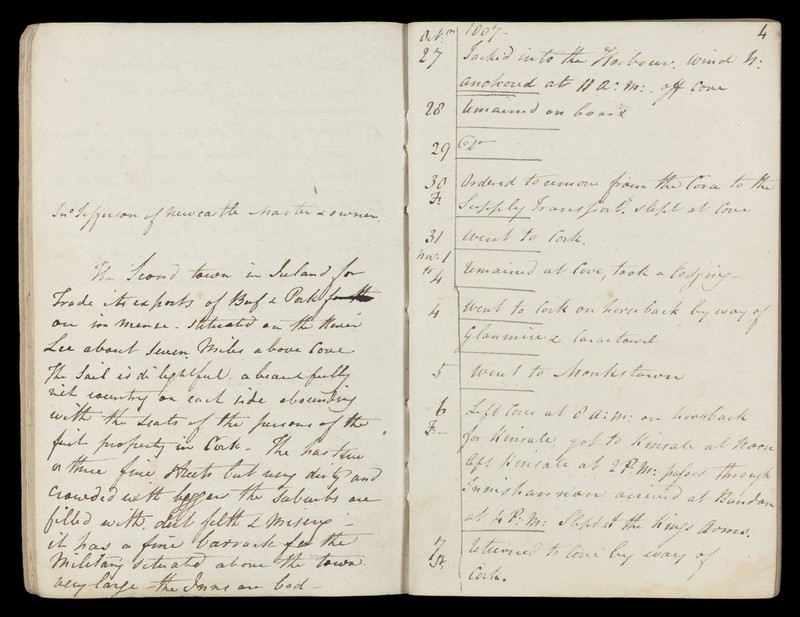 Jno. Jefferson of Newcastle Master & owner
The Second town in Ireland for
Trade its exports of Beef & Pork
are immense - situated on the River
Lee about Seven Miles above Cove
The Sail is delightful. a beautifully
rich country on each side abounding
with the seats of the persons of the
first property in Cork - The has two
or three fine Streets but very dirty and
crowded with beggars the Suburbs are
filled with dirt filth & Misery -
it has a fine barrack for the
Military situated above the town.
very large - the Inns are bad -
4
Octr. 1807-
27 Tacked into the Harbour. Wind N:
anchored at 11 A: M: off Cove
28 Remained on board
29 Do
30 Ordered to remove from the Cora to the
F. Supply Transport. slept at Cove
31 Went to Cork.
Nov. 1
to 4 Remained at Cove, took a Lodging -
4 Went to Cork on horseback by way of
Glanmire &
5 Went to Monkstown
6 Left Cove at 8 A: M: on horseback
F. - for Kinsale, got to Kinsale at Noon
left Kinsale at 2 P: M: passed through
Innishannon arrived at Bandon
at 4 P: M: Slept at the Kings Arms.
7 Returned to Cove by way of
St. Cork.